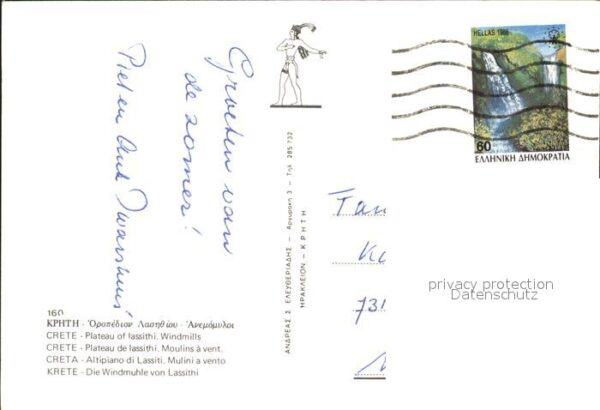 Groeten van
de zomer!
Piet en
160
ΚΡΗΤΗ - Ὀροπέδιον Λασηθίου - Ἀνεμόμυλοι
CRETE - Plateau of lassithi, Windmills
CRETE - Plateau de lassithi, Moulins à vent.
CRETA - Altipiano di Lassiti, Mulini a vento
KRETE - Die Windmuhle von Lassithi
ΑΝΔΡΕΑΣ Σ. ΕΛΕΥΘΕΡΙΑΔΗΣ - Αργυράκη 3 - Τηλ. 285-732
ΗΡΑΚΛΕΙΟΝ - ΚΡΗΤΗ
HELLAS 1988
60
ΕΛΛΗΝΙΚΗ ΔΗΜΟΚΡΑΤΙΑ
Fam
731
privacy protection
Datenschutz